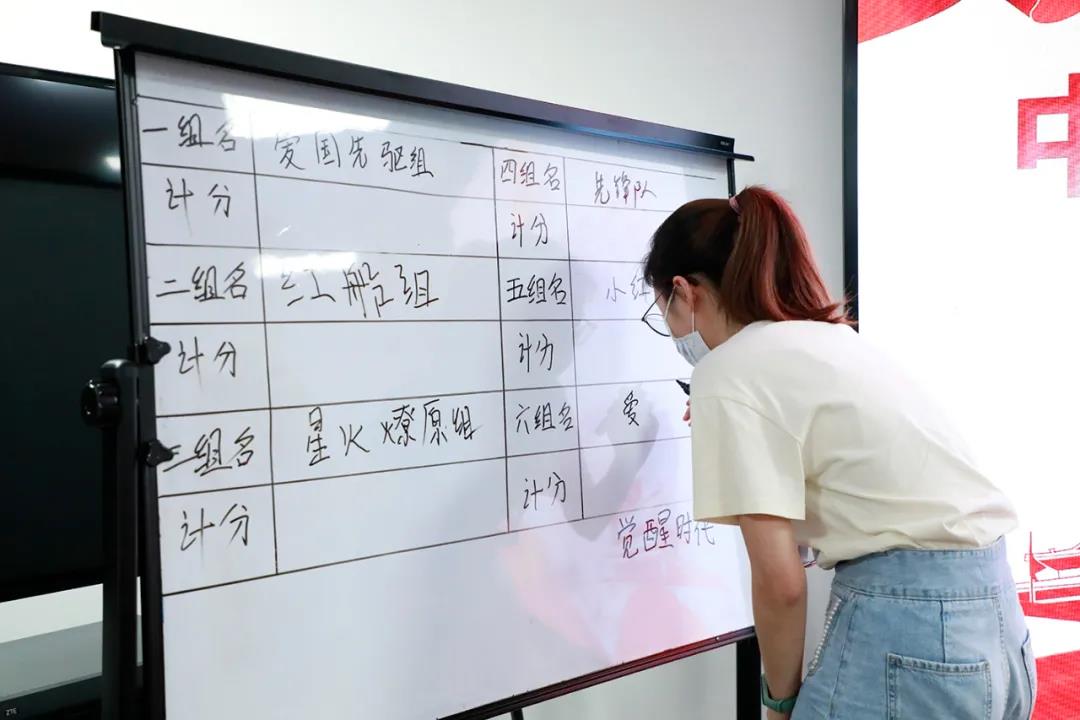 一组名 爱国先驱组 四组名 先锋队
计分 计分
二组名 红船组 五组名 小红
计分 计分
三组名 星火燎原组 六组名 爱
计分 计分
觉醒时代
中
ZTE